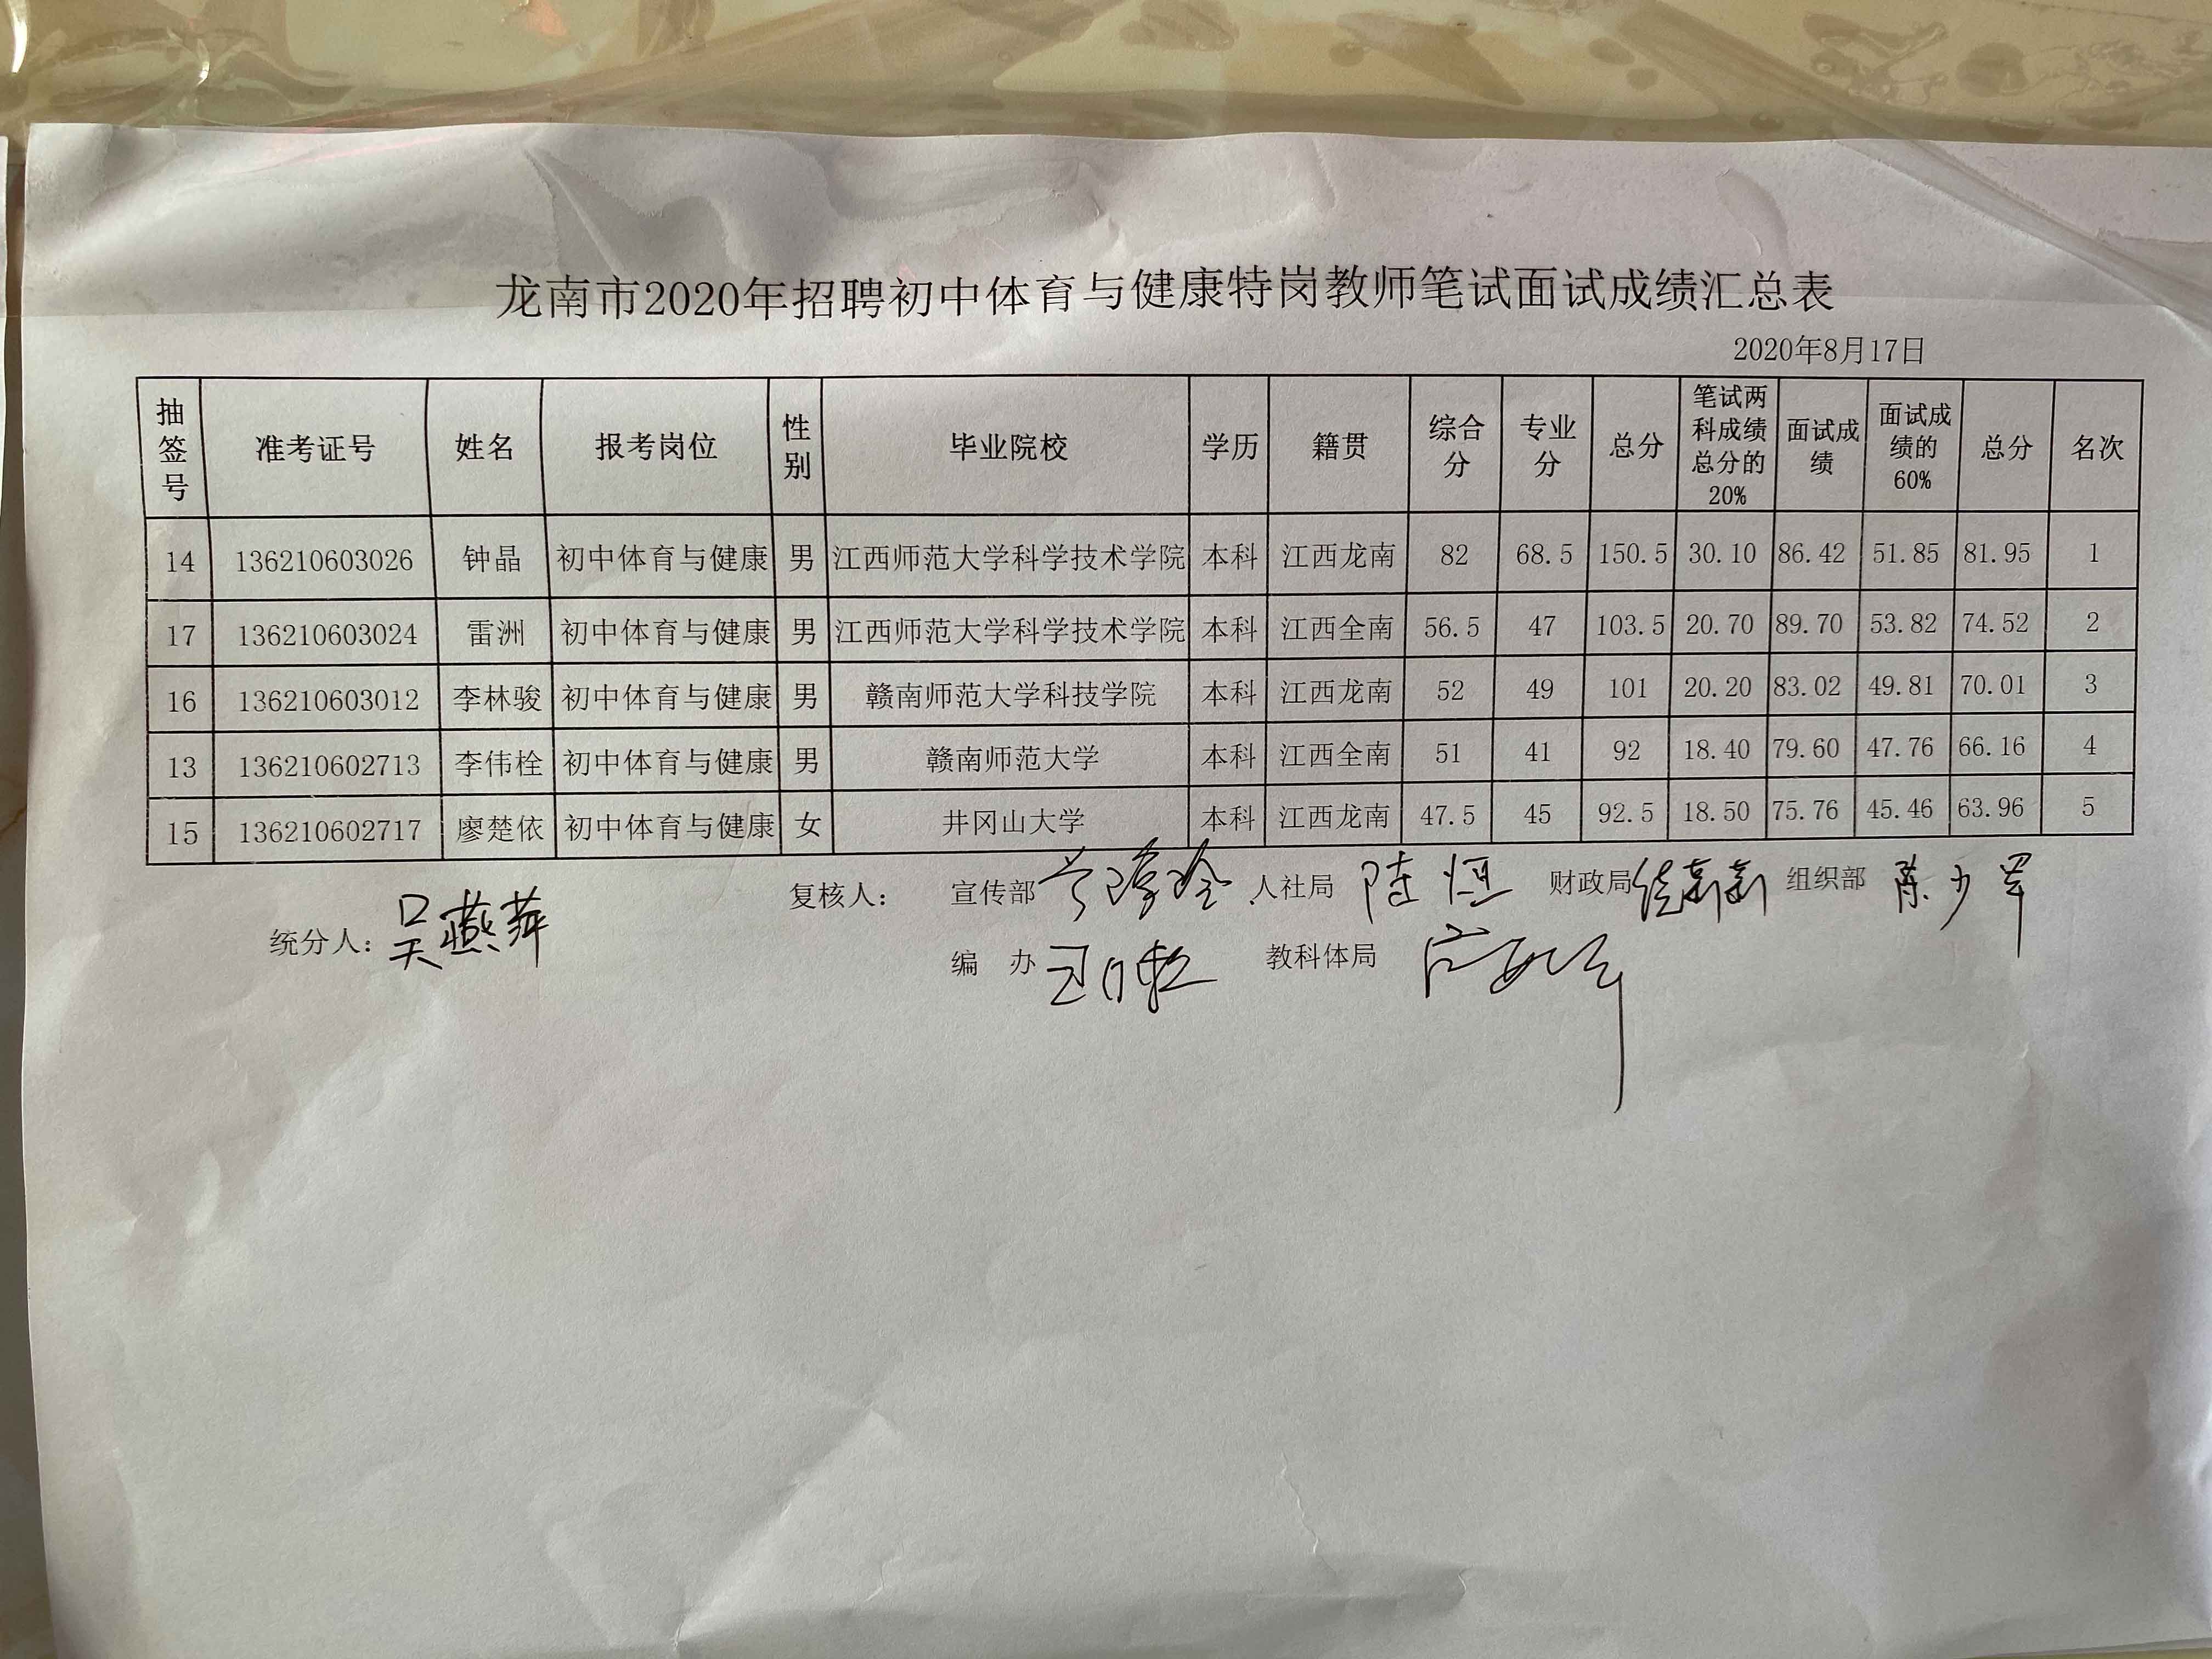 龙南市2020年招聘初中体育与健康特岗教师笔试面试成绩汇总表
2020年8月17日
抽签号 准考证号 姓名 报考岗位 性别 毕业院校 学历 籍贯 综合分 专业分 总分 笔试两科成绩总分的20% 面试成绩 面试成绩的60% 总分 名次
14 136210603026 钟晶 初中体育与健康 男 江西师范大学科学技术学院 本科 江西龙南 82 68.5 150.5 30.10 86.42 51.85 81.95 1
17 136210603024 雷洲 初中体育与健康 男 江西师范大学科学技术学院 本科 江西全南 56.5 47 103.5 20.70 89.70 53.82 74.52 2
16 136210603012 李林骏 初中体育与健康 男 赣南师范大学科技学院 本科 江西龙南 52 49 101 20.20 83.02 49.81 70.01 3
13 136210602713 李伟栓 初中体育与健康 男 赣南师范大学 本科 江西全南 51 41 92 18.40 79.60 47.76 66.16 4
15 136210602717 廖楚依 初中体育与健康 女 井冈山大学 本科 江西龙南 47.5 45 92.5 18.50 75.76 45.46 63.96 5
复核人： 宣传部 人社局 财政局 组织部
统分人：吴燕萍 编 办 教科体局